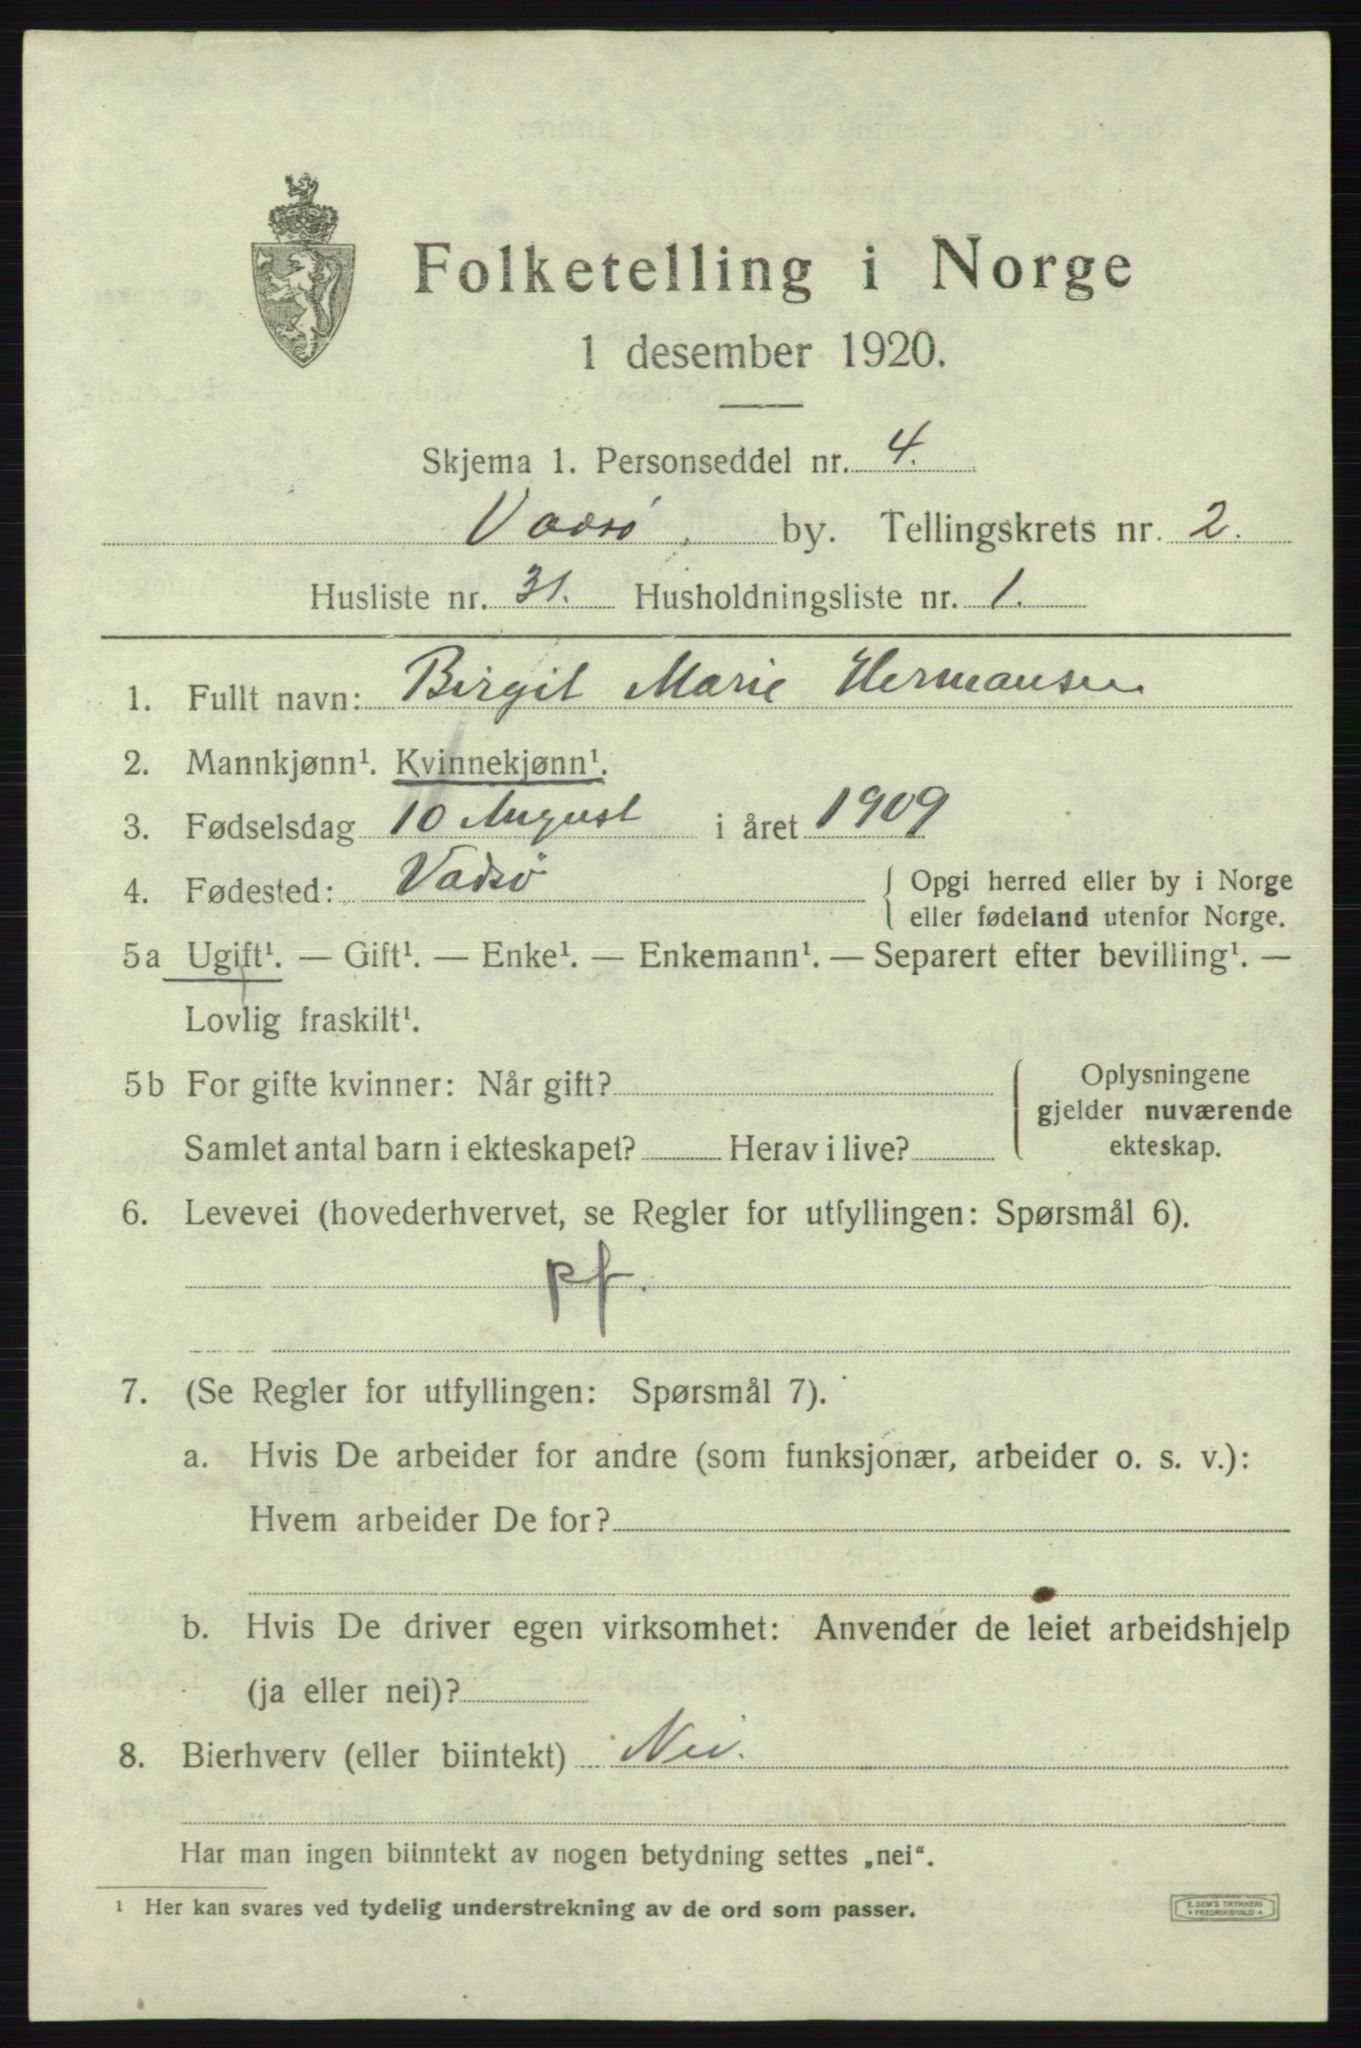 Folketelling i Norge
1 desember 1920.
Skjema 1. Personseddel nr. 4.
Vadsø, by. Tellingskrets nr. 2.
Husliste nr. 31. Husholdningsliste nr. 1.
1. Fullt navn: Birgit Marie Hermansen
2. Mannkjønn¹. Kvinnekjønn¹.
3. Fødselsdag 10 August i året 1909
4. Fødested: Vadsø { Opgi herred eller by i Norge
eller fødeland utenfor Norge.
5a Ugift¹. — Gift¹. — Enke¹. — Enkemann¹. — Separert efter bevilling¹. —
Lovlig fraskilt¹.
5b For gifte kvinner: Når gift?
Samlet antal barn i ekteskapet? Herav i live?
Oplysningene
gjelder nuværende
ekteskap.
6. Levevei (hovederhvervet, se Regler for utfyllingen: Spørsmål 6).
pf.
7. (Se Regler for utfyllingen: Spørsmål 7).
a. Hvis De arbeider for andre (som funksjonær, arbeider o. s. v.):
Hvem arbeider De for?
b. Hvis De driver egen virksomhet: Anvender de leiet arbeidshjelp
(ja eller nei)?
8. Bierhverv (eller biintekt) Nei.
Har man ingen biinntekt av nogen betydning settes „nei“.
¹ Her kan svares ved tydelig understrekning av de ord som passer.
E. SEM'S TRYKKERI
FREDRIKSHALD